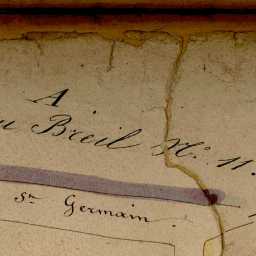 A
u Breil N.° 11.
S.ᵗ Germain.